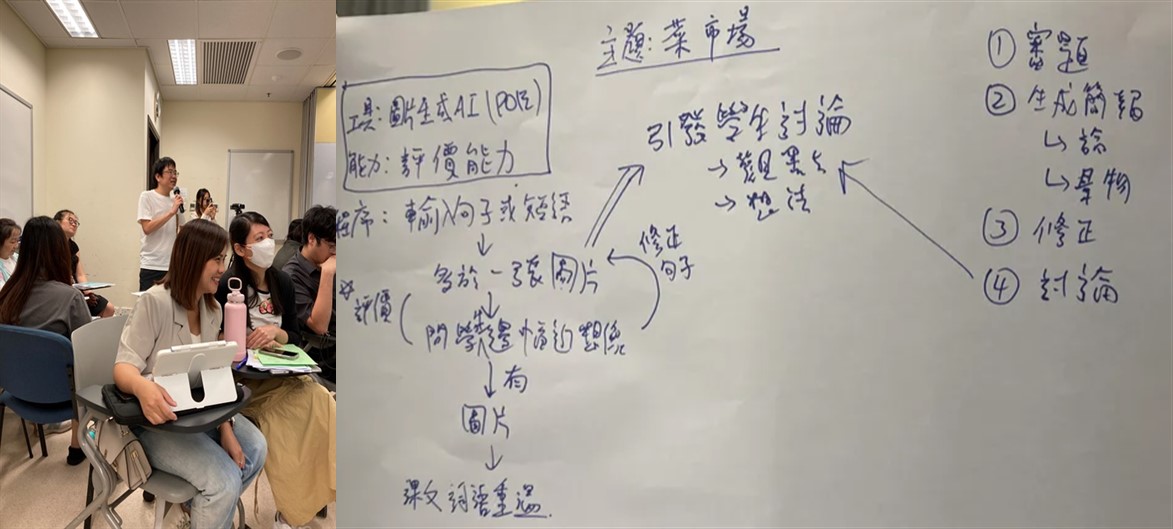 主題: 菜市場
工具: 圖片生成AI (POE)
能力: 評價能力
程序: 輸入句子或短語
多於一張圖片
評價
問學生邊幅近想像
有
圖片
課文詞語重溫
修正
句子
引發學生討論
→ 觀點
→ 想法
① 審題
② 生成簡報
論
③ 修正
④ 討論